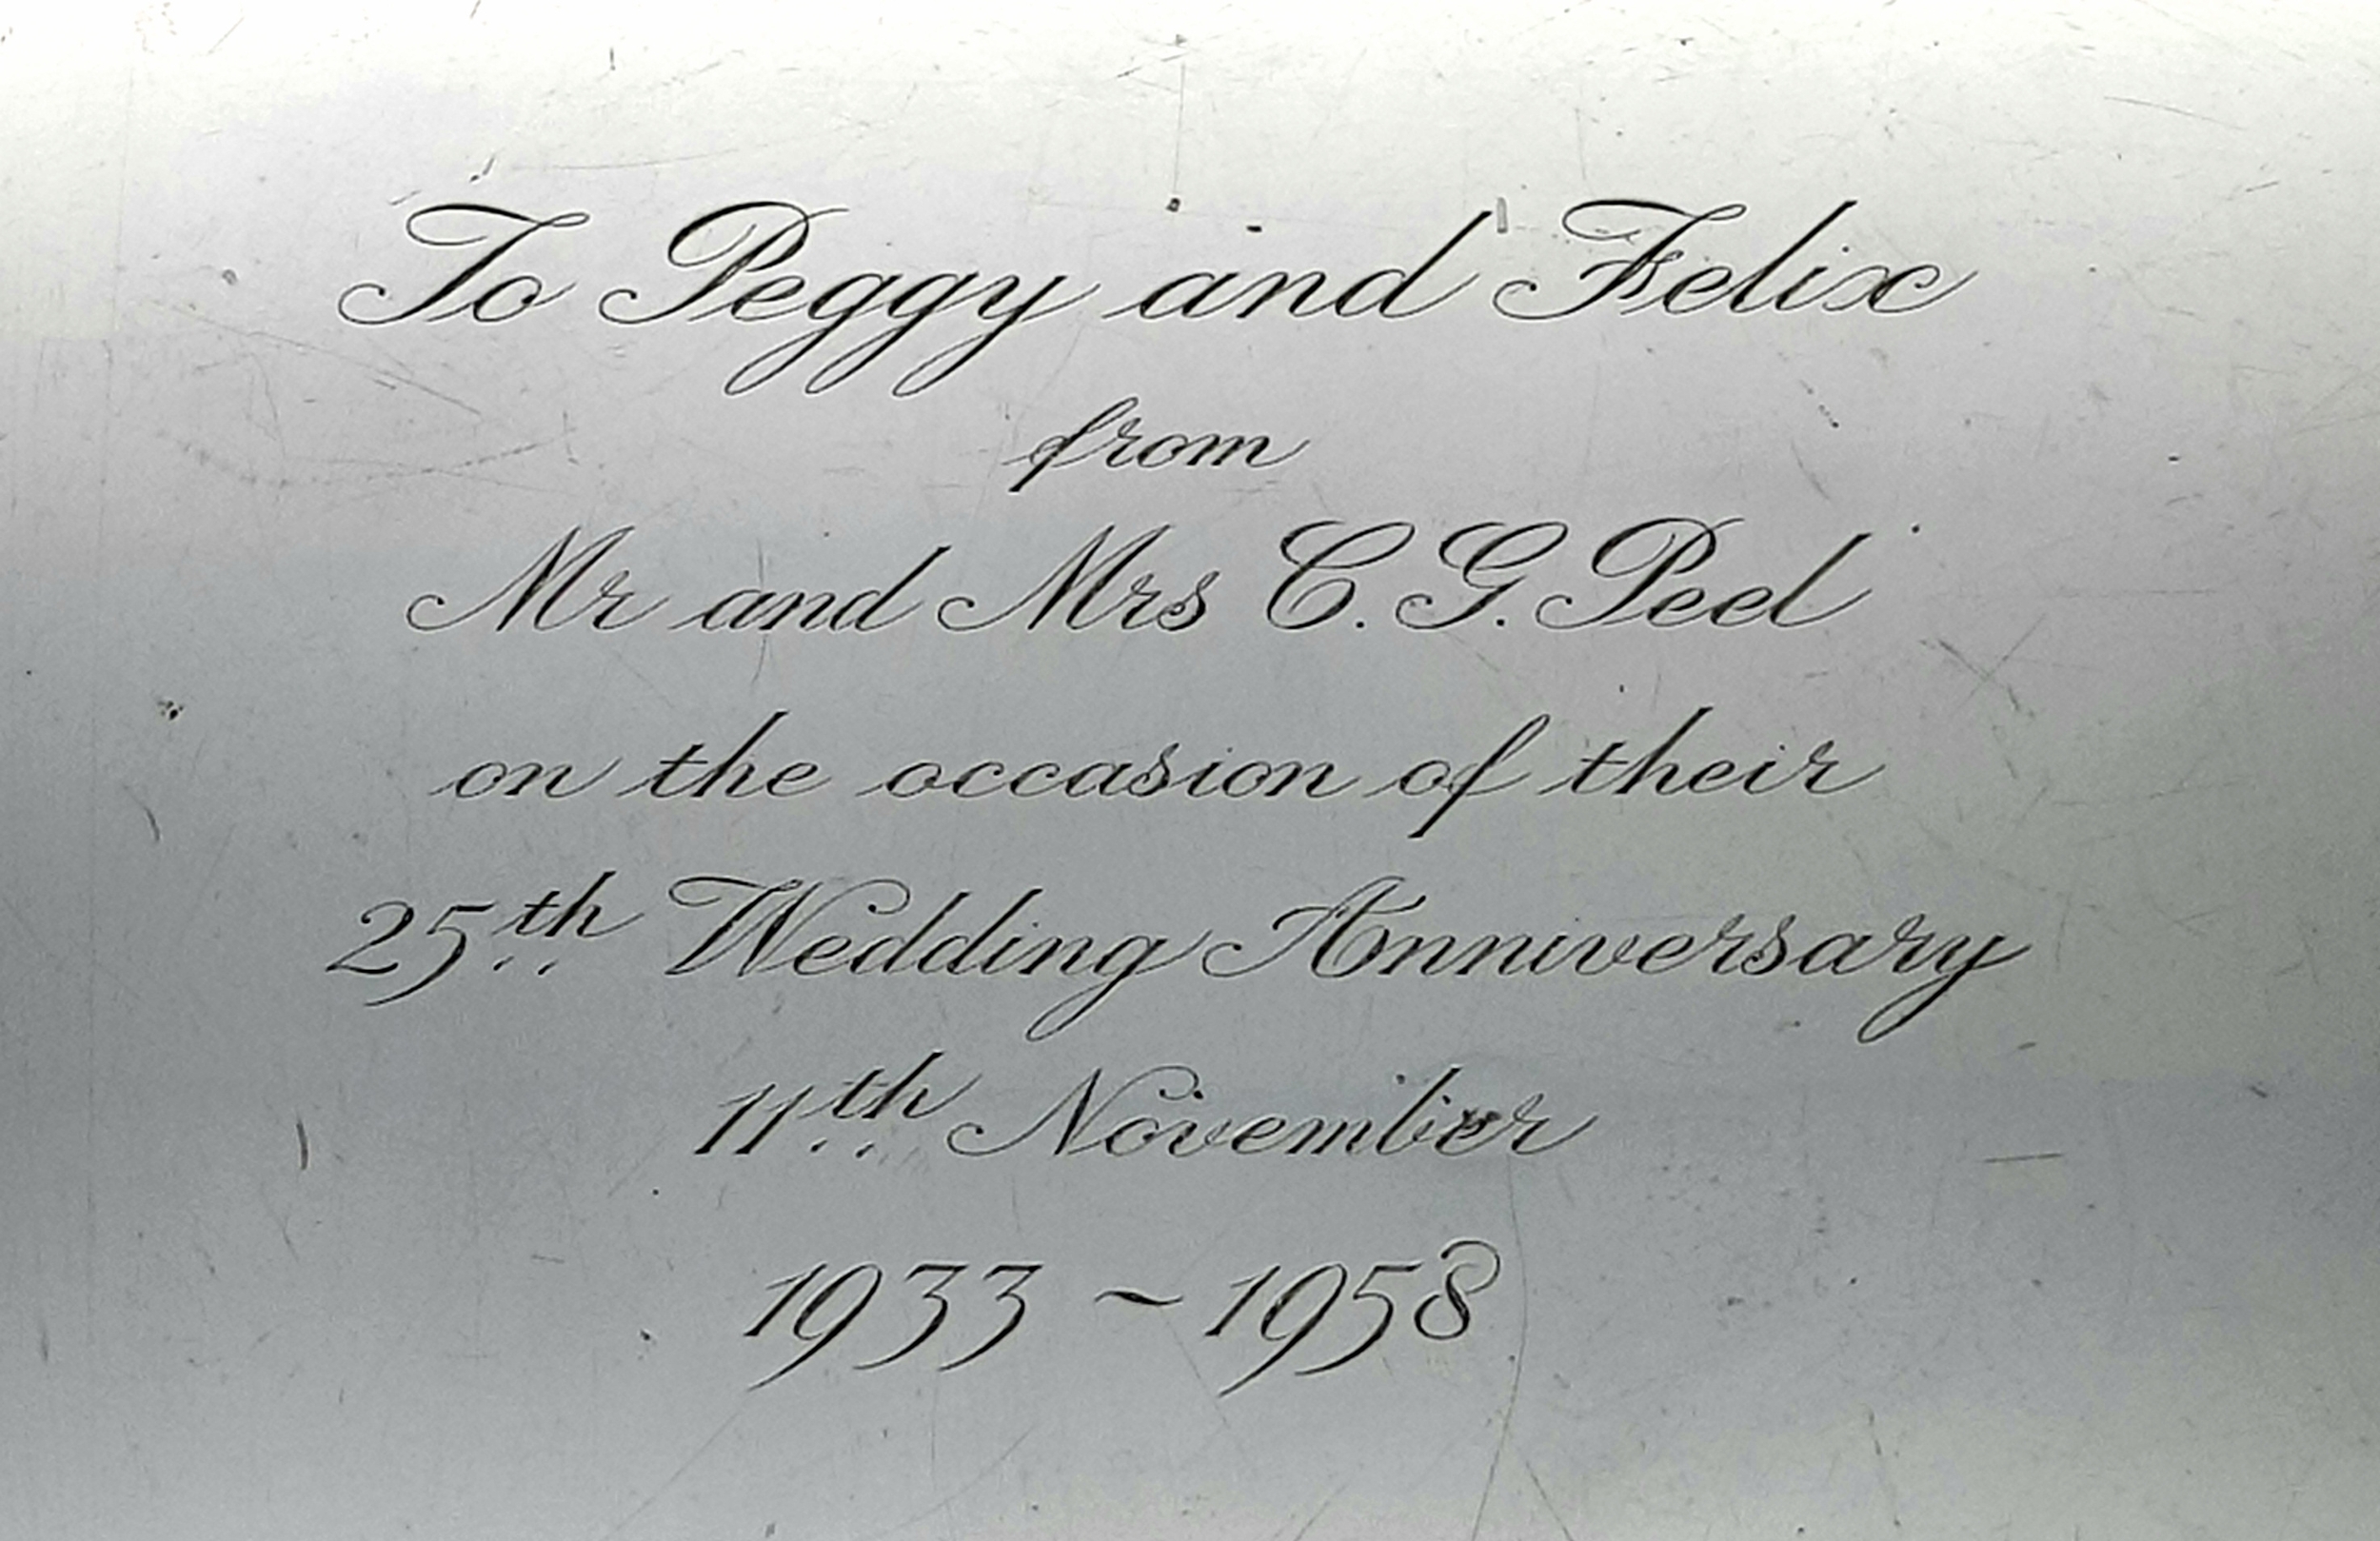 To Peggy and Felix
from
Mr and Mrs C. G. Peel
on the occasion of their
25th Wedding Anniversary
11th November
1933 ~ 1958